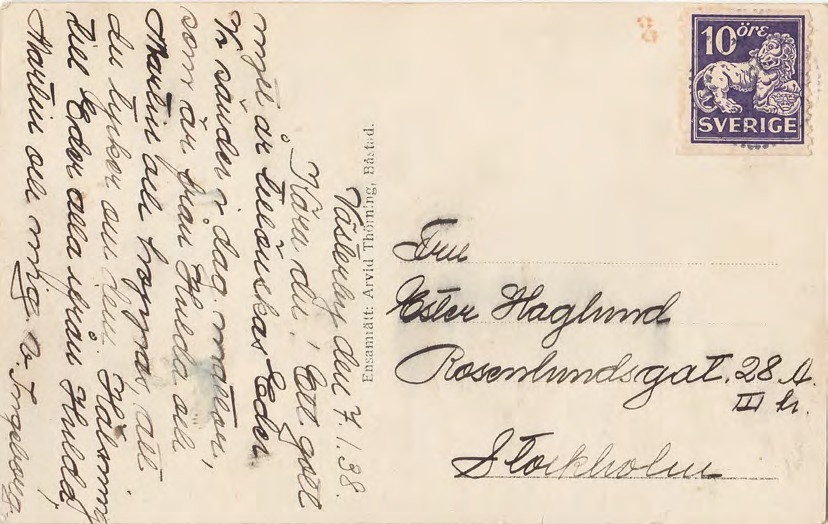 Västerby den 7.1.38.
Kära du! Ett gott
nytt år tillönskas Eder
Vi sänder i dag mattor,
som är från Hulda och
Martin och hoppas, att
du tycker om dem. Hälsning
till Eder alla ifrån Hulda,
Martin och mig. Ingeborg.
Ensamrätt: Arvid Thörning, Båstad.
10 öre
SVERIGE
Fru
Ester Haglund
Rosenlundsgat. 28 A.
III tr.
Stockholm